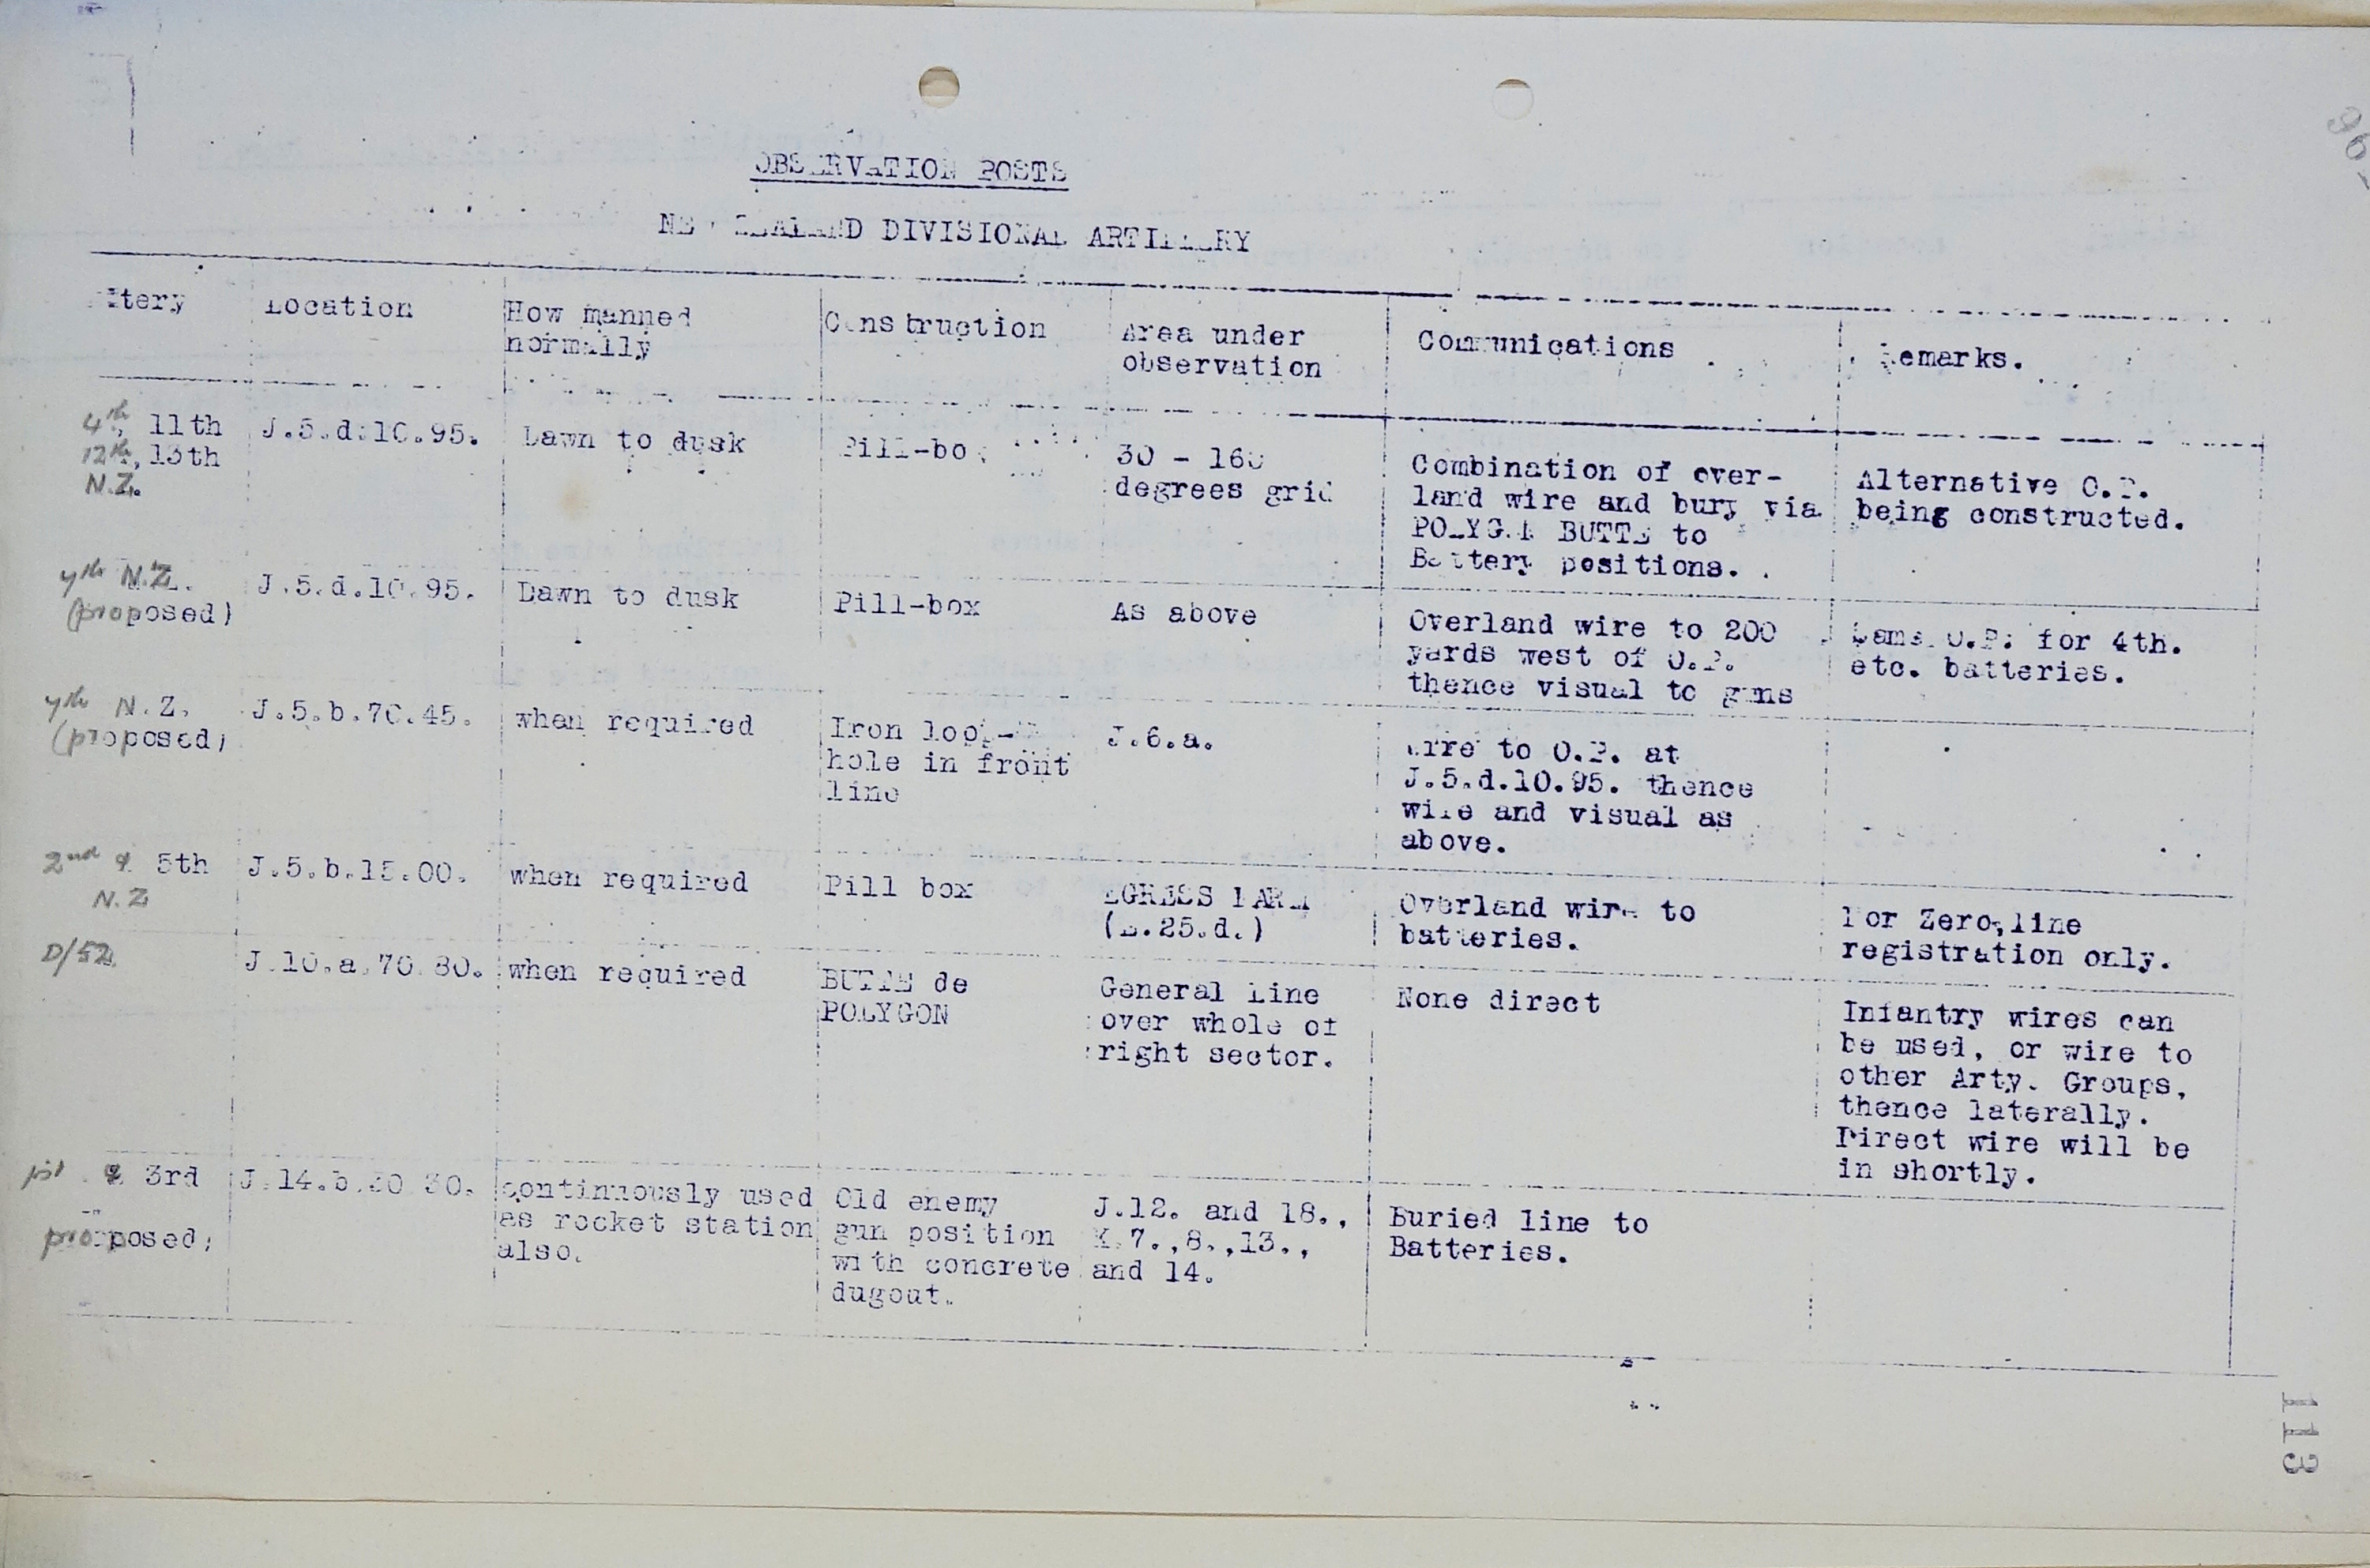 96
OBSERVATION POSTS
NEW ZEALAND DIVISIONAL ARTILLERY
Battery Location How manned normally Construction Area under observation Communications Remarks.
4th, 11th
12th, 13th
N.Z.
J.5.d.10.95.
Dawn to dusk
Pill-box
30 - 160
degrees grid
Combination of over-
land wire and bury via
POLYGON BUTTE to
Battery positions.
Alternative O.P.
being constructed.
7th N.Z.
(proposed)
J.5.d.10.95.
Dawn to dusk
Pill-box
As above
Overland wire to 200
yards west of O.P.
thence visual to guns
Same O.P. for 4th.
etc. batteries.
7th N.Z.
(proposed)
J.5.b.70.45.
when required
Iron loop-
hole in front
line
J.6.a.
Wire to O.P. at
J.5.d.10.95. thence
wire and visual as
above.
2nd & 5th
N.Z.
J.5.b.15.00.
when required
Pill box
EGRESS FARM
(E.25.d.)
Overland wire to
batteries.
For Zero-line
registration only.
D/52
J.10.a.70.80.
when required
BUTTE de
POLYGON
General line
over whole of
right sector.
None direct
Infantry wires can
be used, or wire to
other Arty. Groups,
thence laterally.
Direct wire will be
in shortly.
1st & 3rd
proposed)
J.14.b.30.
continuously used
as rocket station
also.
Old enemy
gun position
with concrete
dugout.
J.12. and 18.,
K.7.,8.,13.,
and 14.
Buried line to
Batteries.
113